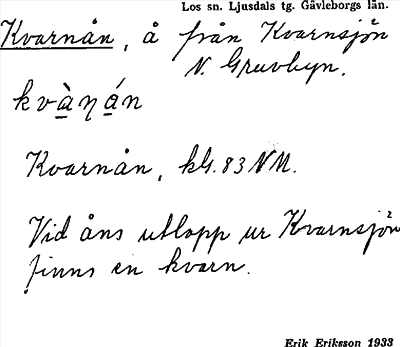 Los sn. Ljusdals tg. Gävleborgs län.
Kvarnån, å från Kvarnsjön
N. Gruvbyn.
kvàṇán
Kvarnån, kls. 83 NM.
Vid åns utlopp ur Kvarnsjön
finns en kvarn.
Erik Eriksson 1933